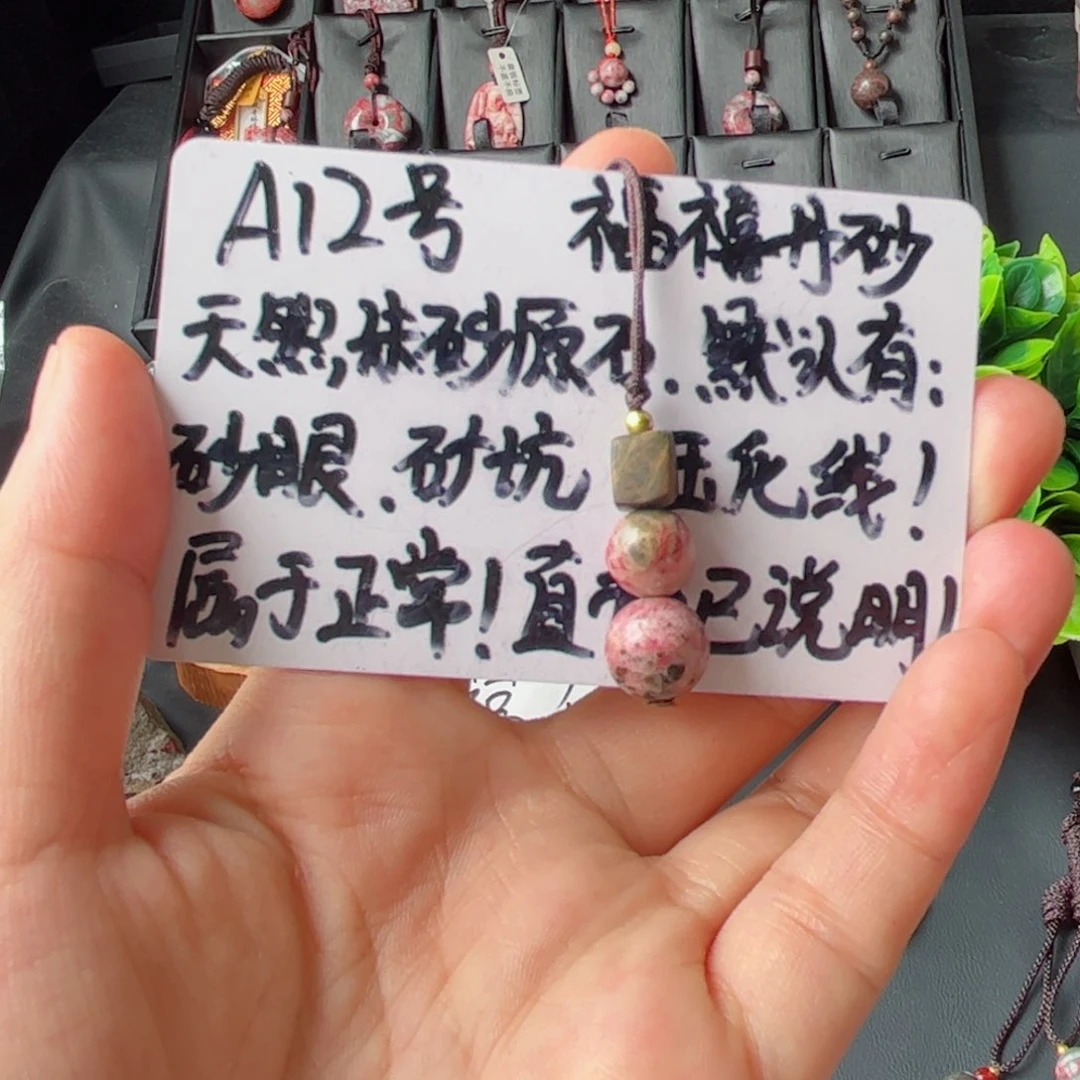 A12号 福禧丹砂
天然,珠砂原石.默认有:
砂眼.砂坑 压化线!
属于正常!直 已说明!